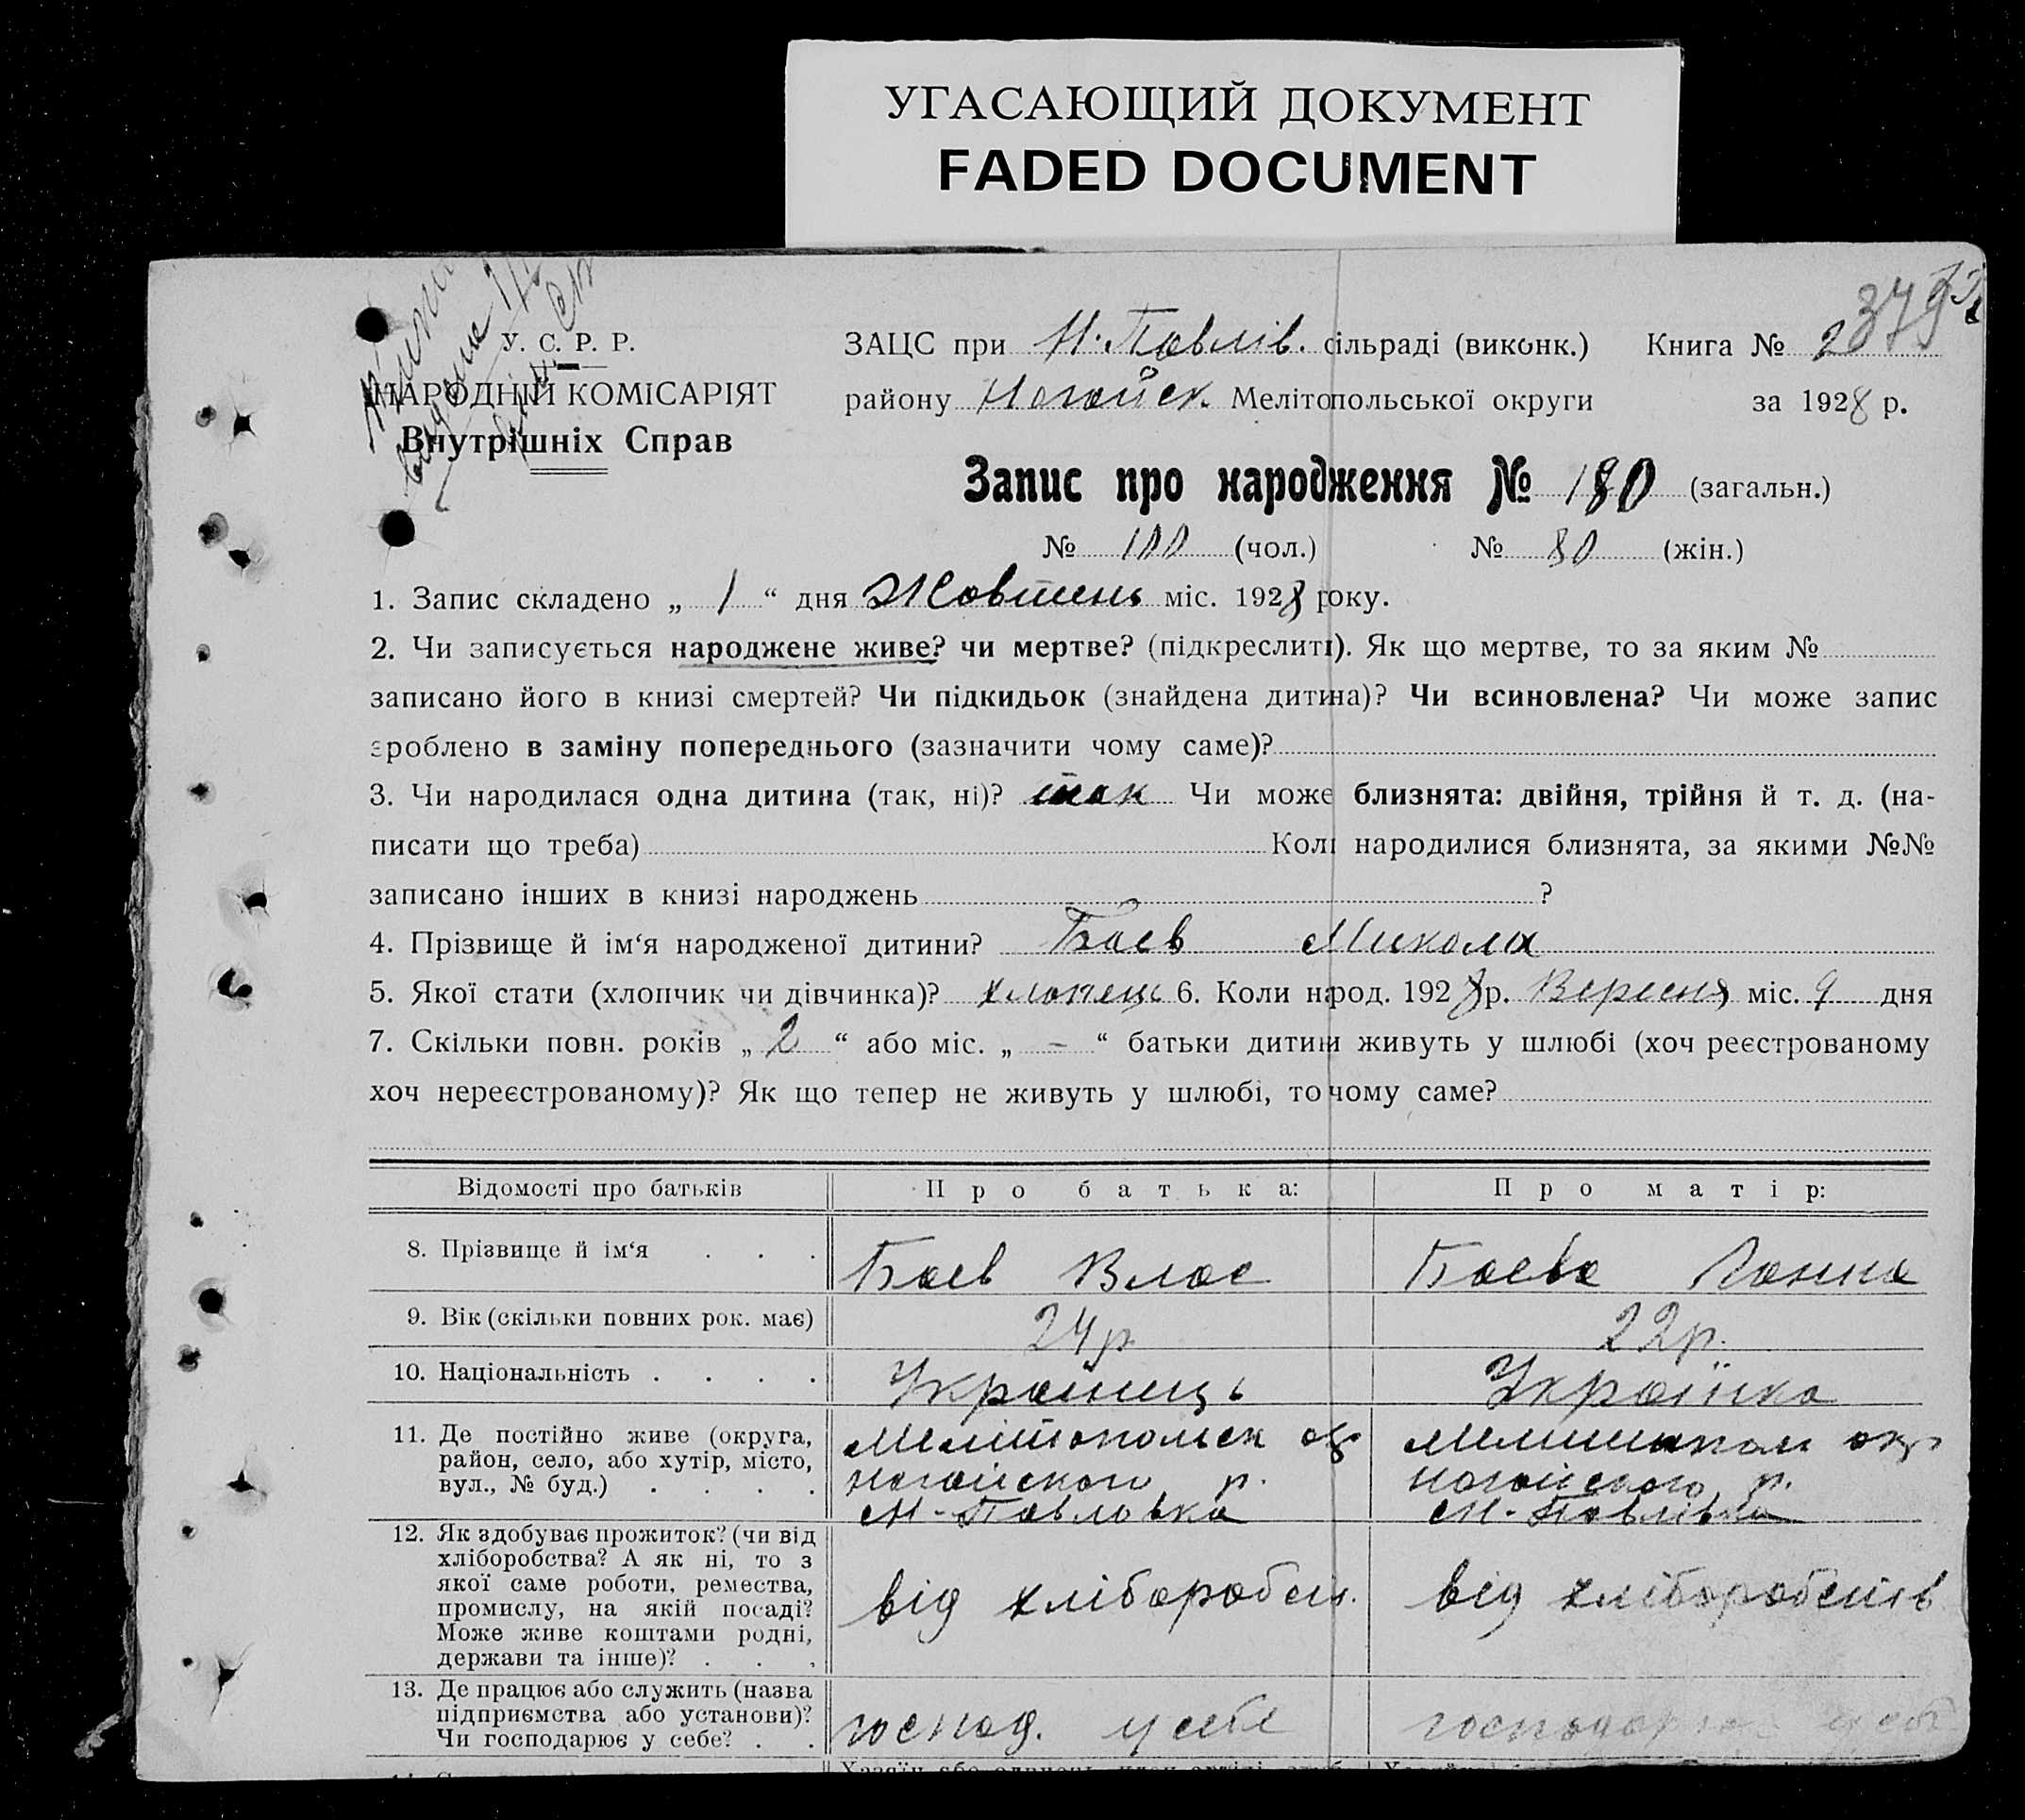 УГАСАЮЩИЙ ДОКУМЕНТ
FADED DOCUMENT
У. С. Р. Р.
НАРОДНІЙ КОМІСАРІЯТ
Внутрішніх Справ
ЗАЦС при Н. Павлів. сільраді (виконк.) Книга № 2
379
району Ногайськ. Мелітопольської округи за 1928 р.
Запис про народження № 180 (загальн.)
№ 100 (чол.) № 80 (жін.)
1. Запис складено „ 1 “ дня Жовтень міс. 1928 року.
2. Чи записується народжене живе? чи мертве? (підкреслити). Як що мертве, то за яким №
записано його в книзі смертей? Чи підкидьок (знайдена дитина)? Чи всиновлена? Чи може запис
зроблено в заміну попереднього (зазначити чому саме)?
3. Чи народилася одна дитина (так, ні)? так Чи може близнята: двійня, трійня й т. д. (на-
писати що треба) Колі народилися близнята, за якими №№
записано інших в книзі народжень ?
4. Прізвище й ім‘я народженої дитини? Баев Микола
5. Якої стати (хлопчик чи дівчинка)? хлопець 6. Коли народ. 1928 р. Вересня міс. 9 дня
7. Скільки повн. років „ 2 “ або міс. „ - “ батьки дитини живуть у шлюбі (хоч реєстрованому
хоч нереєстрованому)? Як що тепер не живуть у шлюбі, то чому саме?
Відомості про батьків Про батька: Про матір:
8. Прізвище й ім‘я . . . Баев Влас Баева Ганна
9. Вік (скільки повних рок. має) 24 р. 22 р.
10. Національність . . . . Украинець Українка
11. Де постійно живе (округа, Мелітопольск окр Мелитопол окр
район, село, або хутір, місто, ногайского р. ногайского р.
вул., № буд.) . . . . Н-Павловка Н-Павлівка
12. Як здобуває прожиток? (чи від
хліборобства? А як ні, то з
якої саме роботи, ремества, від хліборобст. від хліборобств
промислу, на якій посаді?
Може живе коштами родні,
держави та інше)? . . .
13. Де працює або служить (назва
підприємства або установи)? господ. у себе господарює у себе
Чи господарює у себе? . .